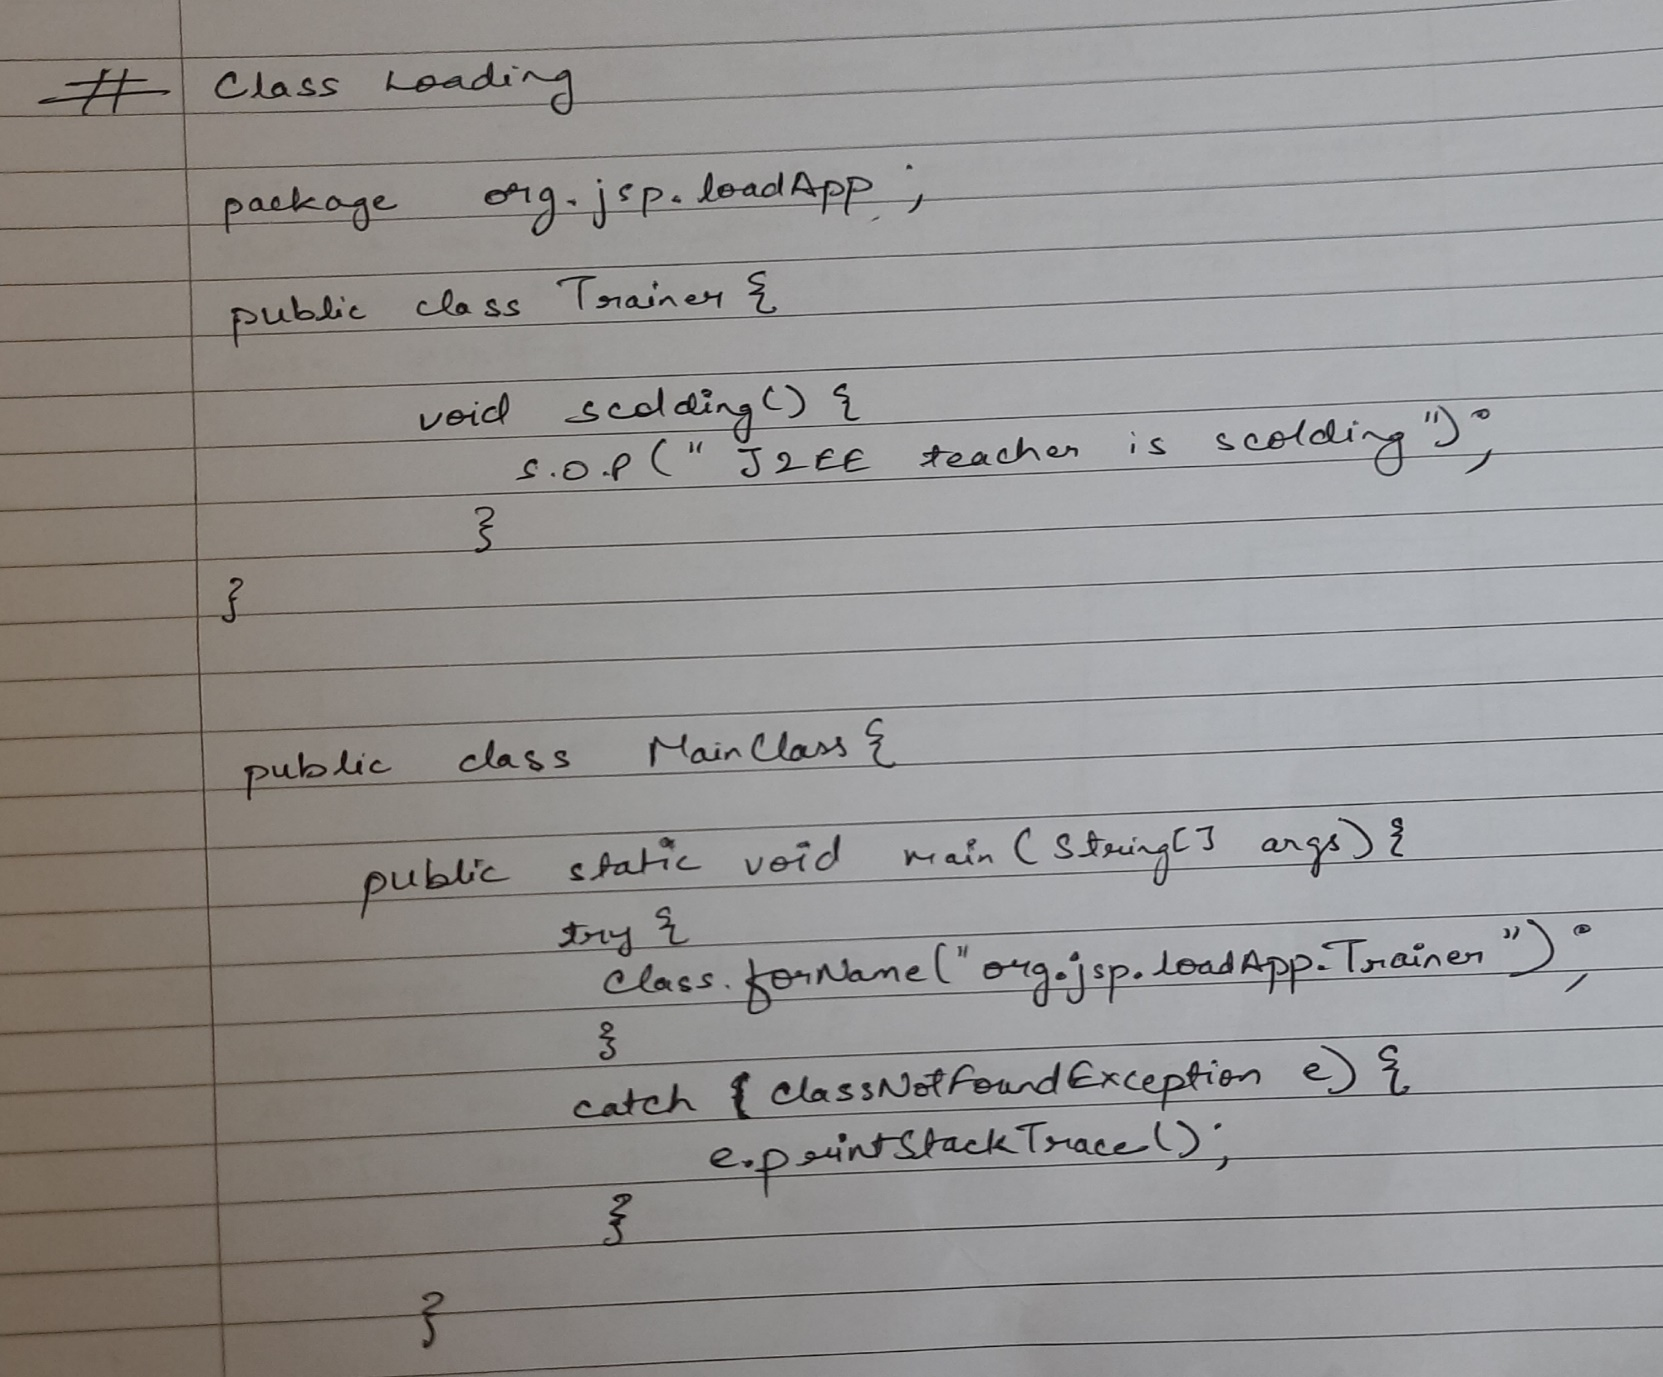 # Class Loading
package org.jsp.loadApp;
public class Trainer {
void scolding() {
S.O.P (" J2EE teacher is scolding");
}
}
public class MainClass {
public static void main (String[] args) {
try {
Class.forName("org.jsp.loadApp.Trainer");
}
catch { ClassNotFoundException e) {
e.printStackTrace();
}
}